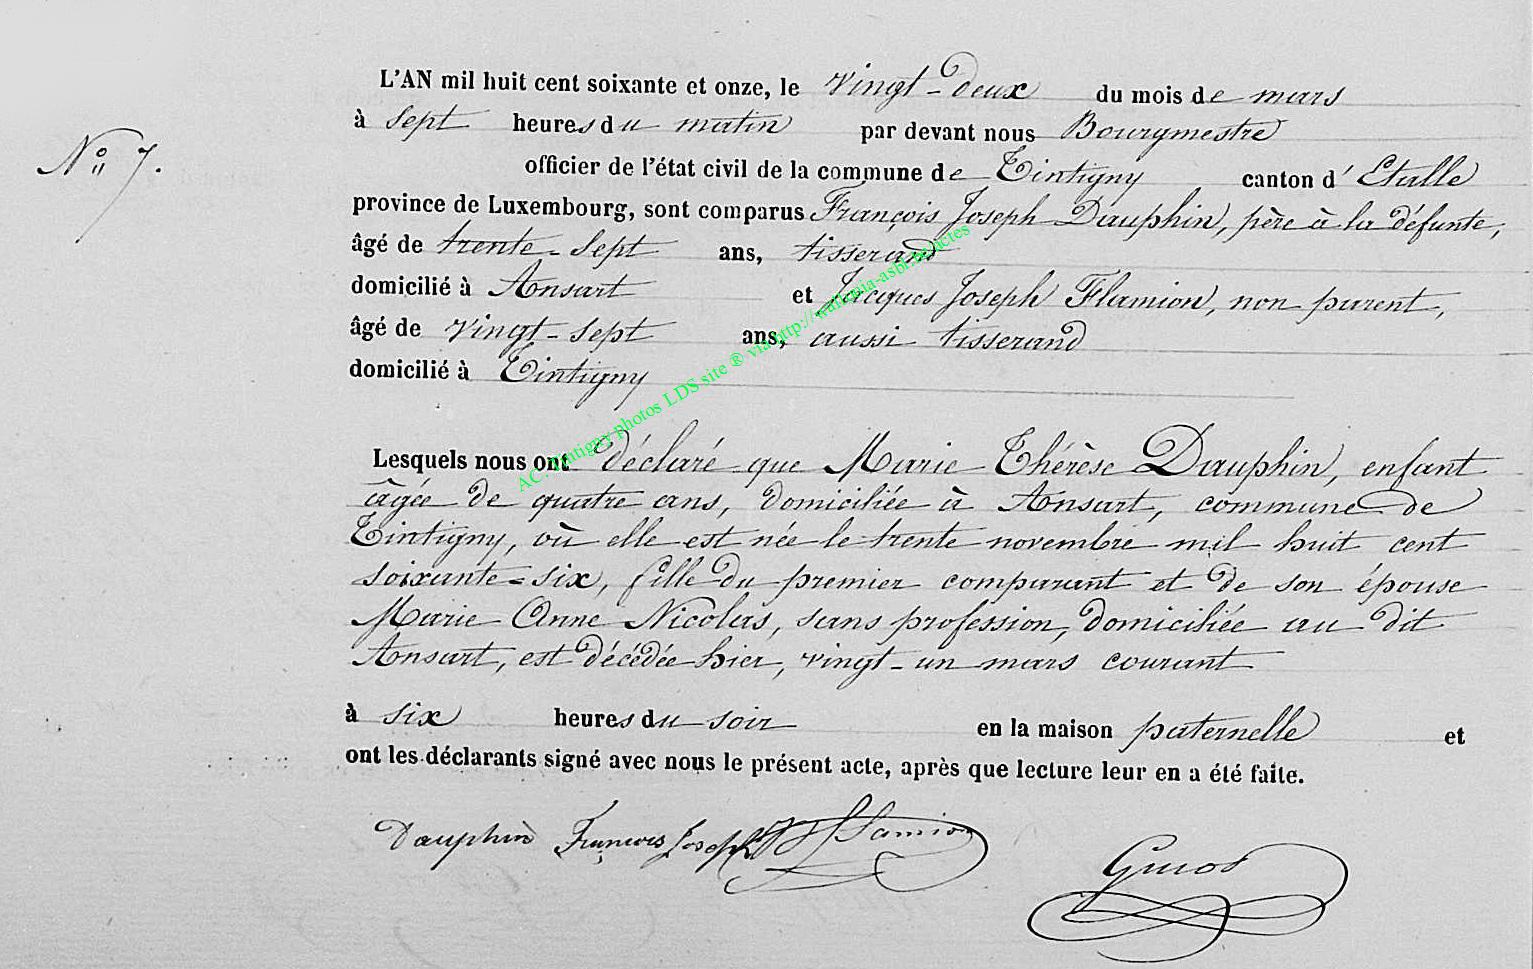 L'AN mil huit cent soixante et onze, le vingt-deux du mois de mars
à sept heures du matin par devant nous Bourgmestre
N° 7.
officier de l'état civil de la commune de Tintigny canton d' Etalle
province de Luxembourg, sont comparus François Joseph Dauphin, père à la défunte,
âgé de trente-sept ans, tisserand
domicilié à Ansart et Jacques Joseph Flamion, non parent,
âgé de vingt-sept ans, aussi tisserand
domicilié à Tintigny
Lesquels nous ont déclaré que Marie Thérèse Dauphin, enfant
âgée de quatre ans, domiciliée à Ansart, commune de
Tintigny, où elle est née le trente novembre mil huit cent
soixante=six, fille du premier comparant et de son épouse
Marie Anne Nicolas, sans profession, domiciliée au dit
Ansart, est décédée hier, vingt-un mars courant
à six heures du soir en la maison paternelle et
ont les déclarants signé avec nous le présent acte, après que lecture leur en a été faite.
Dauphin François Joseph JJ Flamion
AC. Tintigny photos LDS site ® via http://wallonia-asbl.be/actes